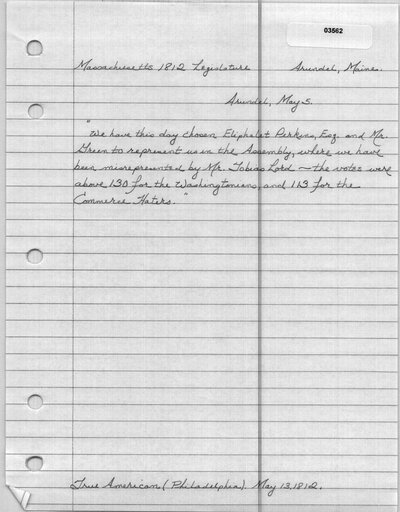 03562
Massachusetts 1812 Legislature Arundel, Maine.
Arundel, May 5.
"We have this day chosen Eliphalet Perkins, Esq. and Mr.
Green to represent us in the Assembly, where we have
been misrepresented by Mr. Tobias Lord — the votes were
above 130 for the Washingtonians, and 113 for the
Commerce Haters."
True American (Philadelphia). May 13, 1812.